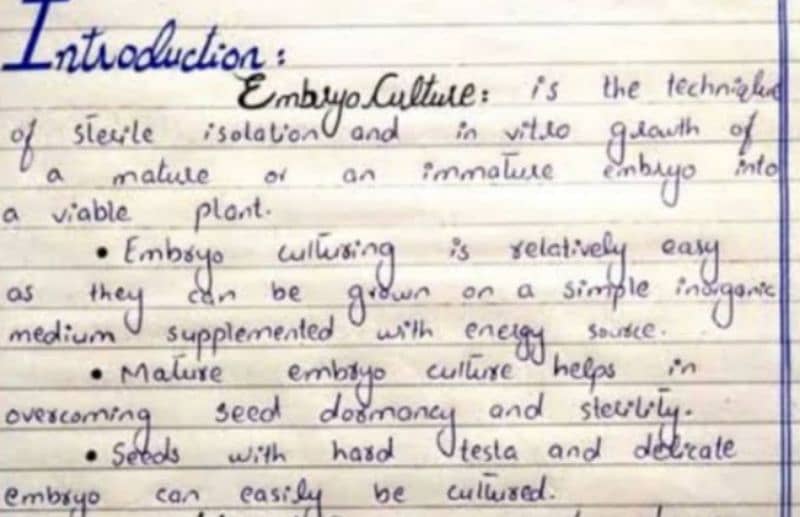 Introduction:
Embryo Culture: is the technique
of sterile isolation and in vitro growth of
a mature or an immature embryo into
a viable plant.
• Embryo culturing is relatively easy
as they can be grown on a simple inorganic
medium supplemented with energy source.
• Mature embryo culture helps in
overcoming seed dormancy and sterility.
• Seeds with hard testa and delicate
embryo can easily be cultured.